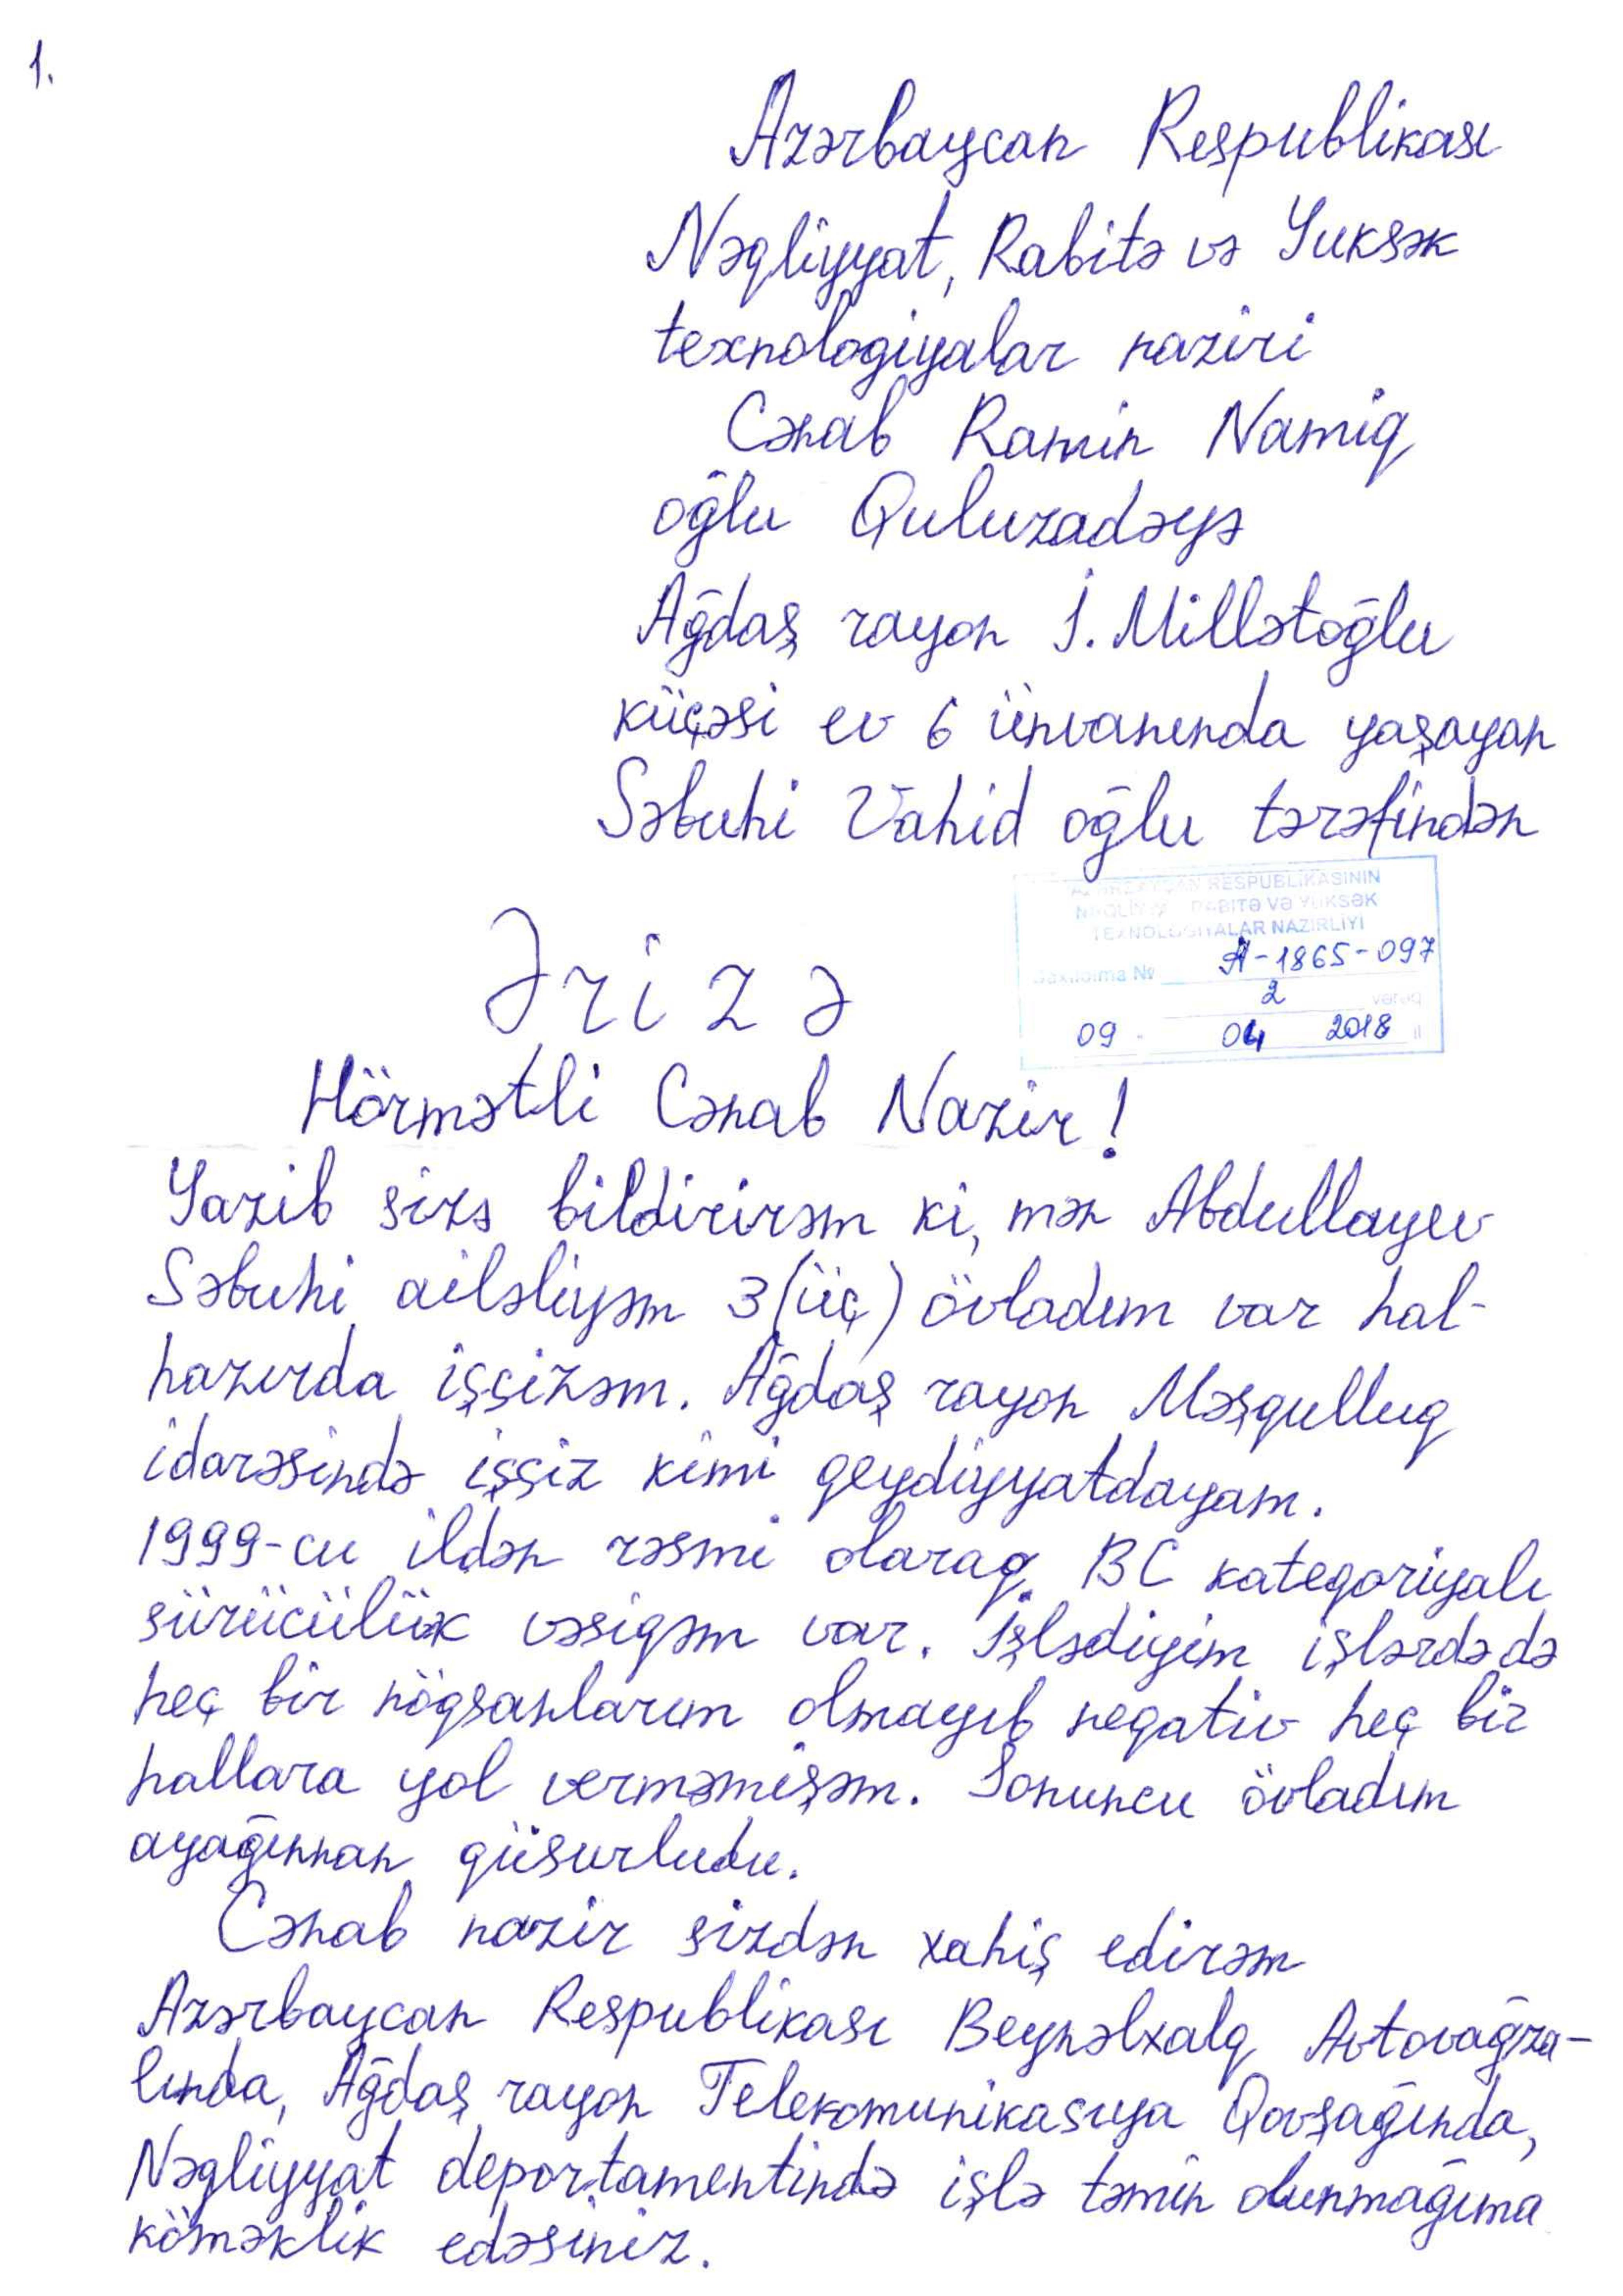 1.
Azərbaycan Respublikası
Nəqliyyat, Rabitə və Yuksək
texnologiyalar naziri
Cənab Ramin Namiq
oğlu Quluzadəyə
Ağdaş rayon İ. Millətoğlu
küçəsi ev 6 ünvanında yaşayan
Səbuhi Vahid oğlu tərəfindən
AZƏRBAYCAN RESPUBLİKASININ
NƏQLİYYAT, RABİTƏ VƏ YÜKSƏK
TEXNOLOGİYALAR NAZİRLİYİ
Daxilolma № A-1865-097
2 vərəq
09 04 2018 il
Ərizə
Hörmətli Cənab Nazir!
Yazib sizə bildirirəm ki, mən Abdullayev
Səbuhi ailəliyəm 3 (üç) övladım var hal-
hazırda işsizəm. Ağdaş rayon Məşqulluq
idarəsində işsiz kimi qeydiyyatdayam.
1999-cu ildən rəsmi olaraq BC kateqoriyalı
sürücülük vəsiqəm var. İşlədiyim işlərdə də
heç bir nöqsanlarım olmayıb neqativ heç bir
hallara yol verməmişəm. Sonuncu övladım
ayağınnan qüsurludu.
Cənab nazir sizdən xahiş edirəm
Azərbaycan Respublikası Beynəlxalq Avtovağza-
lında, Ağdaş rayon Telekomunikasıya Qovşağında,
Nəqliyyat deportamentində işlə təmin olunmağıma
köməklik edəsiniz.